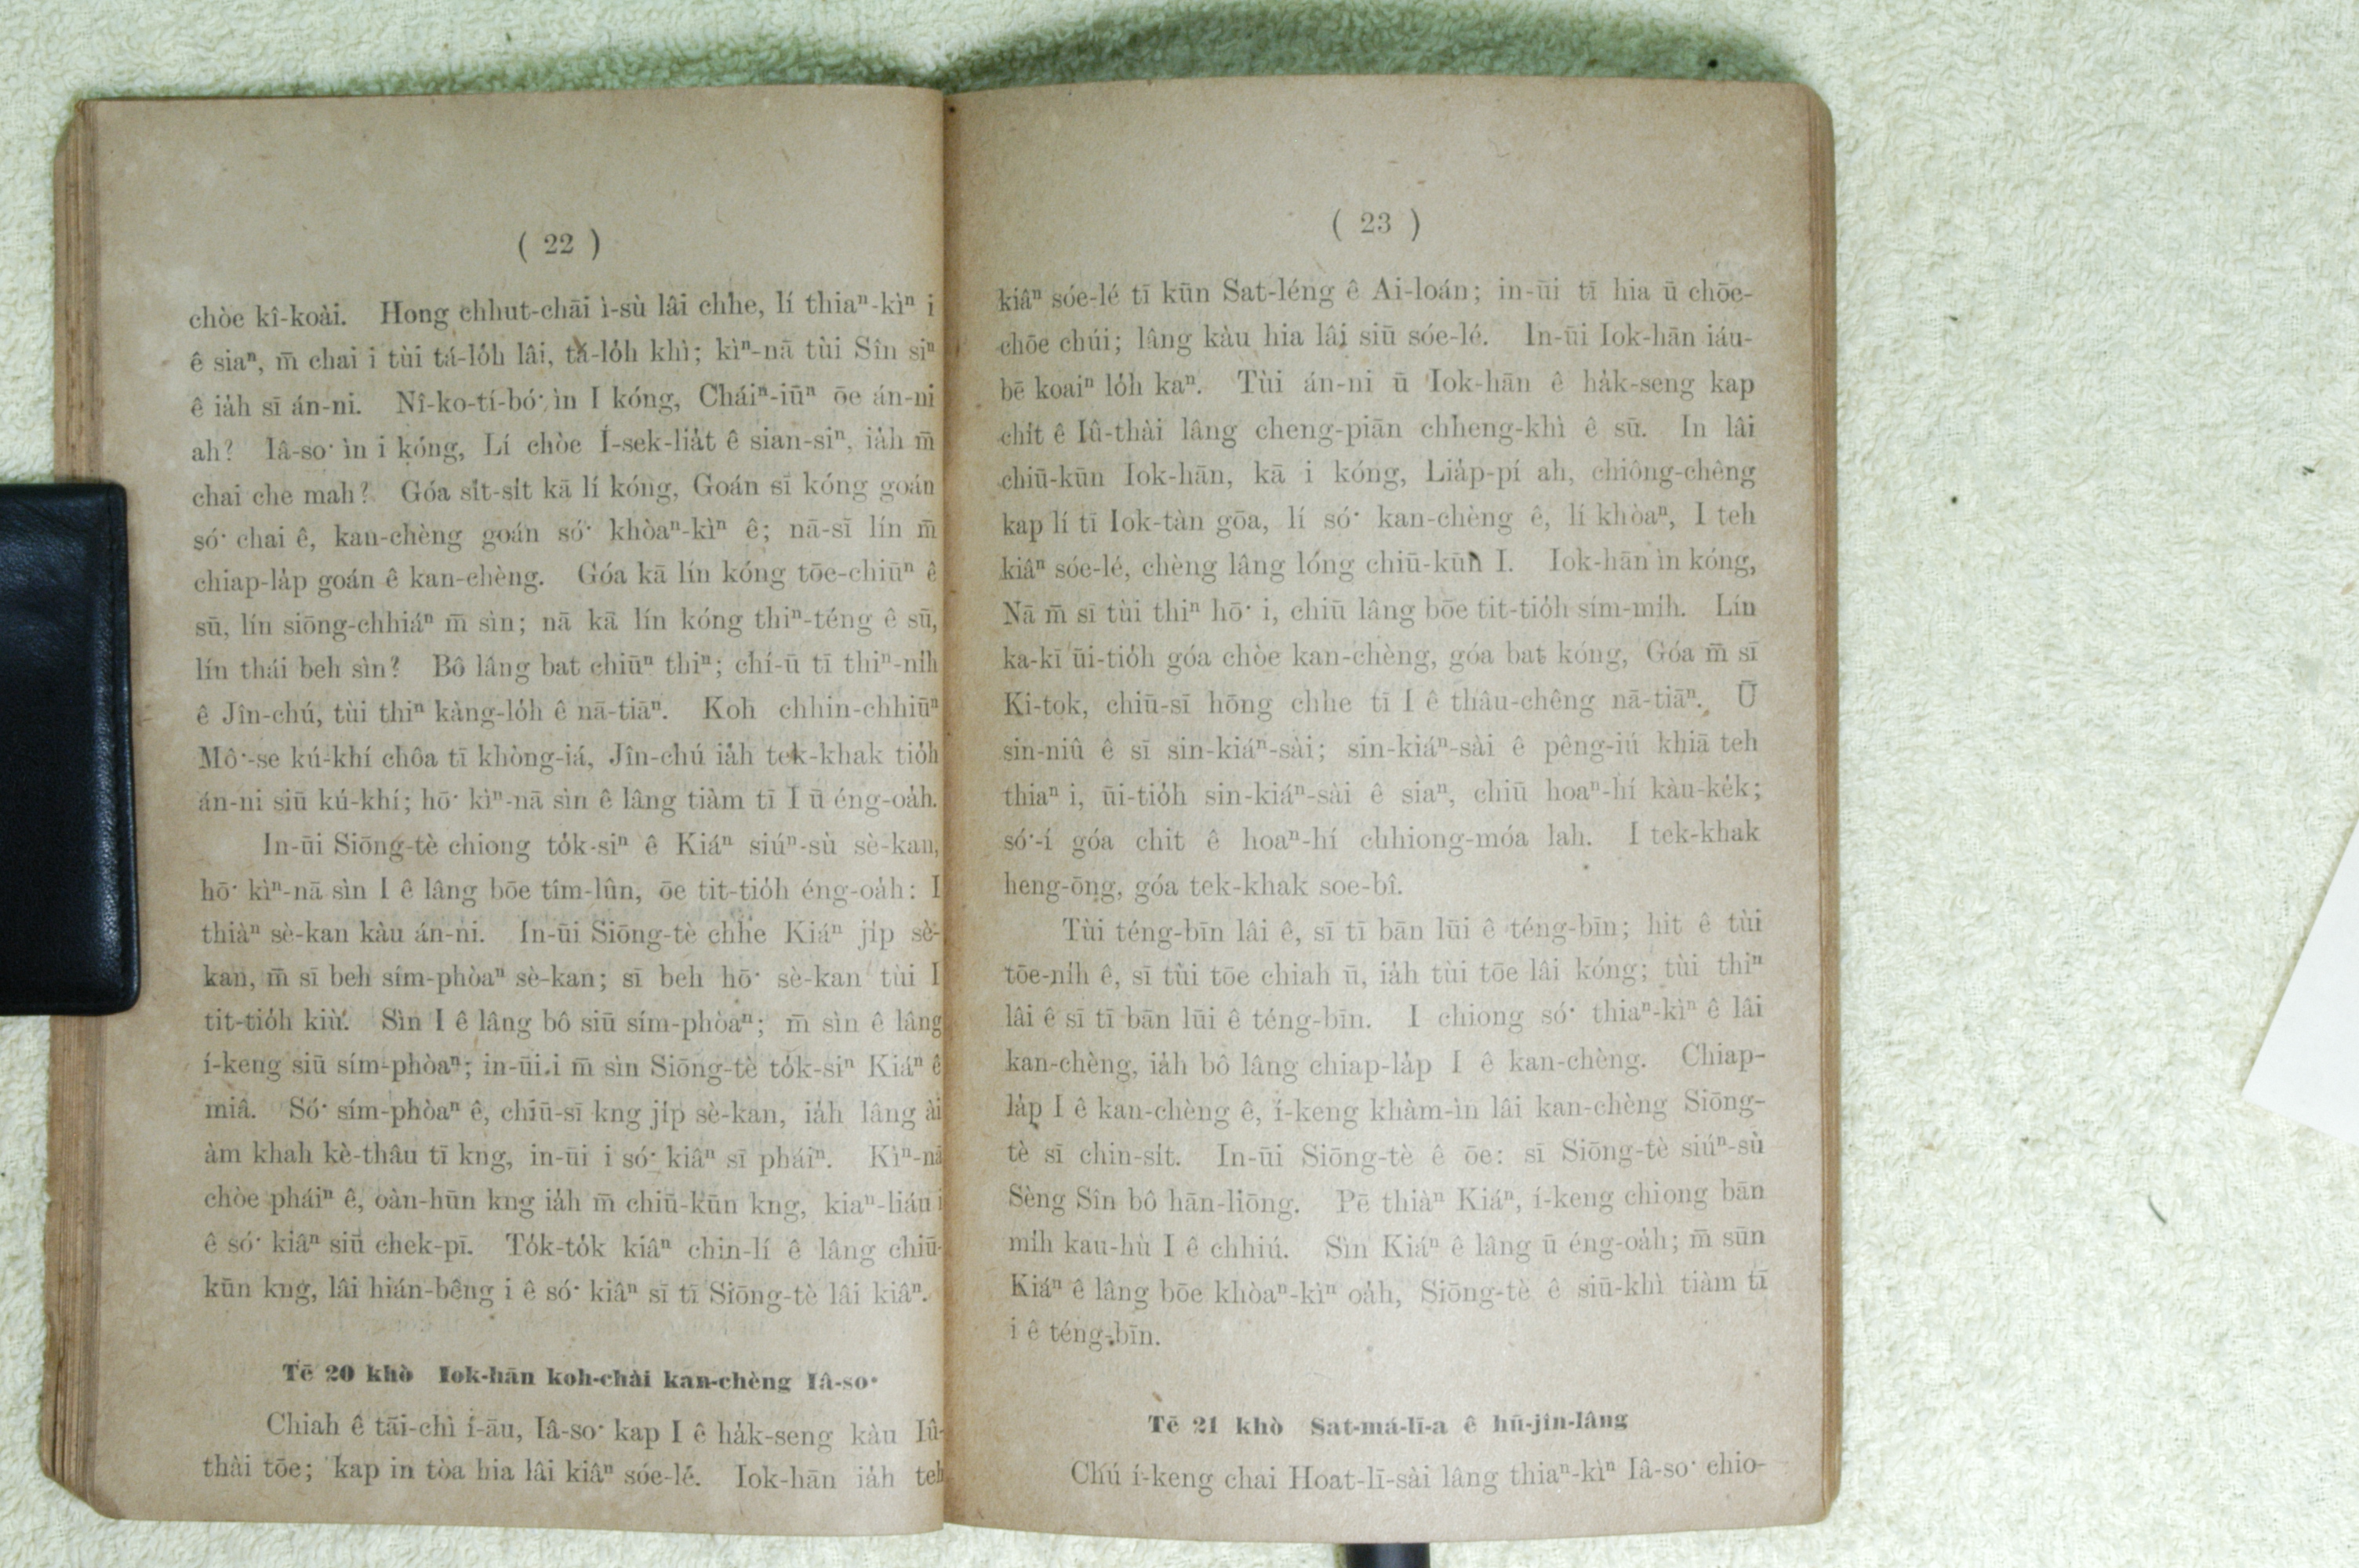 ( 22 )
chòe kî-koài. Hong chhut-chāi ì-sù lâi chhe, lí thiaⁿ-kìⁿ i
ê siaⁿ, m̄ chai i tùi tá-lo̍h lâi, tá-lo̍h khì; kìⁿ-nā tùi Sîn siⁿ
ê ia̍h sī án-ni. Nî-ko-tí-bó͘ ìn I kóng, Cháiⁿ-iūⁿ ōe án-ni
ah? Iâ-so͘ ìn i kóng, Lí chòe Í-sek-lia̍t ê sian-siⁿ, ia̍h m̄
chai che mah? Góa si̍t-si̍t kā lí kóng, Goán sī kóng goán
só͘ chai ê, kan-chèng goán só͘ khòaⁿ-kìⁿ ê; nā-sī lín m̄
chiap-la̍p goán ê kan-chèng. Góa kā lín kóng tōe-chiūⁿ ê
sū, lín siōng-chhiáⁿ m̄ sìn; nā kā lín kóng thiⁿ-téng ê sū,
lín thái beh sìn? Bô lâng bat chiūⁿ thiⁿ; chí-ū tī thiⁿ-ni̍h
ê Jîn-chú, tùi thiⁿ kàng-lo̍h ê nā-tiāⁿ. Koh chhin-chhiūⁿ
Mô͘-se kú-khí chôa tī khòng-iá, Jîn-chú ia̍h tek-khak tio̍h
án-ni siū kú-khí; hō͘ kìⁿ-nā sìn ê lâng tiàm tī I ū éng-oa̍h.
In-ūi Siōng-tè chiong to̍k-siⁿ ê Kiáⁿ siúⁿ-sù sè-kan,
hō͘ kìⁿ-nā sìn I ê lâng bōe tîm-lûn, ōe tit-tio̍h éng-oa̍h: I
thiàⁿ sè-kan kàu án-ni. In-ūi Siōng-tè chhe Kiáⁿ ji̍p sè-
kan, m̄ sī beh sím-phòaⁿ sè-kan; sī beh hō͘ sè-kan tùi I
tit-tio̍h kiù. Sìn I ê lâng bô siū sím-phòaⁿ; m̄ sìn ê lâng
í-keng siū sím-phòaⁿ; in-ūi i m̄ sìn Siōng-tè to̍k-siⁿ Kiáⁿ ê
miâ. Só͘ sím-phòaⁿ ê, chiū-sī kng ji̍p sè-kan, ia̍h lâng ài
àm khah kè-thâu tī kng, in-ūi i só͘ kiâⁿ sī pháiⁿ. Kìⁿ-nā
chòe pháiⁿ ê, oàn-hūn kng ia̍h m̄ chiū-kūn kng, kiaⁿ-liáu i
ê só͘ kiâⁿ siū chek-pī. To̍k-to̍k kiâⁿ chin-lí ê lâng chiū-
kūn kng, lâi hián-bêng i ê só͘ kiâⁿ sī tī Siōng-tè lâi kiâⁿ.
Tē 20 khò Iok-hān koh-chài kan-chèng Iâ-so͘
Chiah ê tāi-chì í-āu, Iâ-so͘ kap I ê ha̍k-seng kàu Iû-
thài tōe; kap in tòa hia lâi kiâⁿ sóe-lé. Iok-hān ia̍h teh
( 23 )
kiâⁿ sóe-lé tī kūn Sat-léng ê Ai-loán; in-ūi tī hia ū chōe-
chōe chúi; lâng kàu hia lâi siū sóe-lé. In-ūi Iok-hān iáu-
bē koaiⁿ lo̍h kaⁿ. Tùi án-ni ū Iok-hān ê ha̍k-seng kap
chi̍t ê Iû-thài lâng cheng-piān chheng-khì ê sū. In lâi
chiū-kūn Iok-hān, kā i kóng, Lia̍p-pí ah, chiông-chêng
kap lí tī Iok-tàn gōa, lí só͘ kan-chèng ê, lí khòaⁿ, I teh
kiâⁿ sóe-lé, chèng lâng lóng chiū-kūn I. Iok-hān ìn kóng,
Nā m̄ sī tùi thiⁿ hō͘ i, chiū lâng bōe tit-tio̍h sím-mi̍h. Lín
ka-kī ūi-tio̍h góa chòe kan-chèng, góa bat kóng, Góa m̄ sī
Ki-tok, chiū-sī hōng chhe tī I ê thâu-chêng nā-tiāⁿ. Ū
sin-niû ê sī sin-kiáⁿ-sài; sin-kiáⁿ-sài ê pêng-iú khiā teh
thiaⁿ i, ūi-tio̍h sin-kiáⁿ-sài ê siaⁿ, chiū hoaⁿ-hí kàu-ke̍k;
só͘-í góa chit ê hoaⁿ-hí chhiong-móa lah. I tek-khak
heng-ōng, góa tek-khak soe-bî.
Tùi téng-bīn lâi ê, sī tī bān lūi ê téng-bīn; hit ê tùi
tōe-ni̍h ê, sī tùi tōe chiah ū, ia̍h tùi tōe lâi kóng; tùi thiⁿ
lâi ê sī tī bān lūi ê téng-bīn. I chiong só͘ thiaⁿ-kìⁿ ê lâi
kan-chèng, ia̍h bô lâng chiap-la̍p I ê kan-chèng. Chiap-
la̍p I ê kan-chèng ê, í-keng khàm-ìn lâi kan-chèng Siōng-
tè sī chin-si̍t. In-ūi Siōng-tè ê ōe: sī Siōng-tè siúⁿ-sù
Sèng Sîn bô hān-liōng. Pē thiàⁿ Kiáⁿ, í-keng chiong bān
mi̍h kau-hù I ê chhiú. Sìn Kiáⁿ ê lâng ū éng-oa̍h; m̄ sūn
Kiáⁿ ê lâng bōe khòaⁿ-kìⁿ oa̍h, Siōng-tè ê siū-khì tiàm tī
i ê téng-bīn.
Tē 21 khò Sat-má-lī-a ê hū-jîn-lâng
Chú í-keng chai Hoat-lī-sài lâng thiaⁿ-kìⁿ Iâ-so͘ chio-